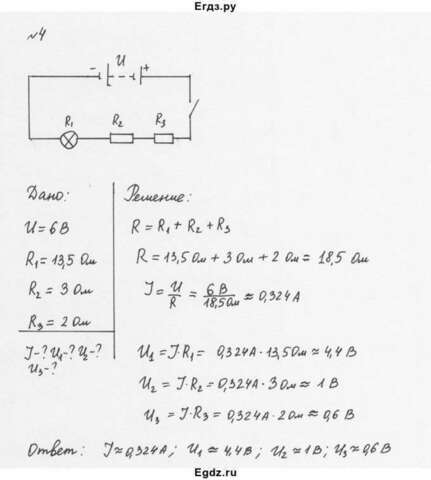 Егдз.ру
№4
- U +
R₁ R₂ R₃
Дано:
U = 6 В
R₁ = 13,5 Ом
R₂ = 3 Ом
R₃ = 2 Ом
I-? U₁-? U₂-?
U₃-?
Решение:
R = R₁ + R₂ + R₃
R = 13,5 Ом + 3 Ом + 2 Ом = 18,5 Ом
I = U/R = 6 В/18,5 Ом ≈ 0,324 А
U₁ = I·R₁ = 0,324 А · 13,5 Ом ≈ 4,4 В
U₂ = I·R₂ = 0,324 А · 3 Ом ≈ 1 В
U₃ = I·R₃ = 0,324 А · 2 Ом ≈ 0,6 В
Ответ: I ≈ 0,324 А; U₁ ≈ 4,4 В; U₂ ≈ 1 В; U₃ ≈ 0,6 В
Egdz.ru